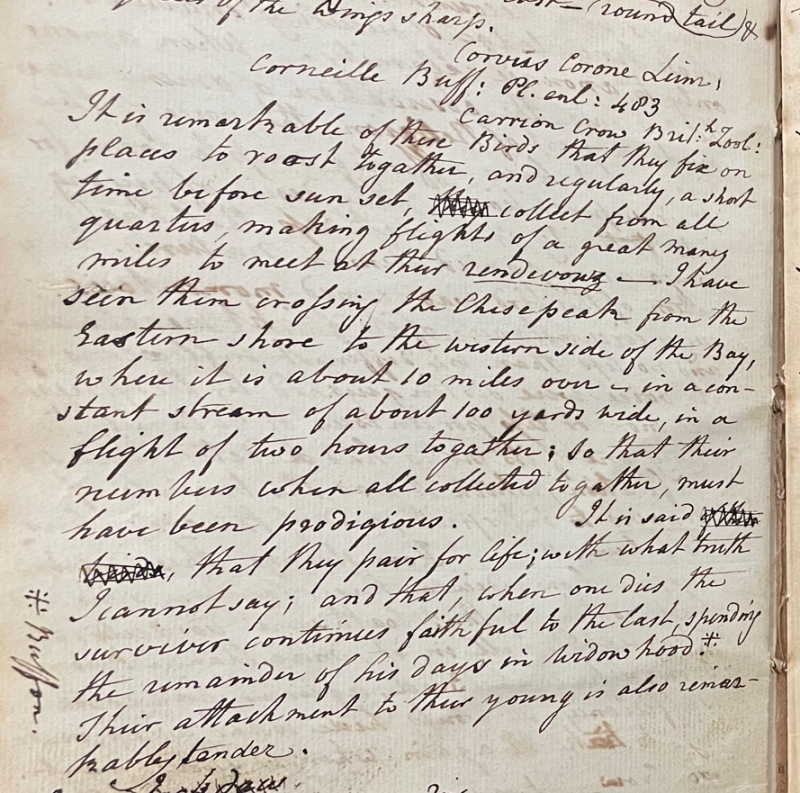 of the Wings sharp.
round tail) &
Corvus Corone Linn:
Corneille Buff: Pl. enl: 483
Carrion Crow Brit:h Zool:
It is remarkable of these Birds that they fix on
places to roost together, and regularly, a short
time before sun set, collect from all
quarters, making flights of a great many
miles to meet at their rendevouz — I have
seen them crossing the Chesepeak from the
Eastern shore to the western side of the Bay,
where it is about 10 miles over – in a con-
stant stream of about 100 yards wide, in a
flight of two hours together; so that their
numbers when all collected together, must
have been prodigious. It is said
, that they pair for life; with what truth
I cannot say; and that, when one dies the
survivor continues faithful to the last, spending
the remainder of his days in widowhood.*
Their attachment to their young is also remar-
kably tender.
* Buffon.